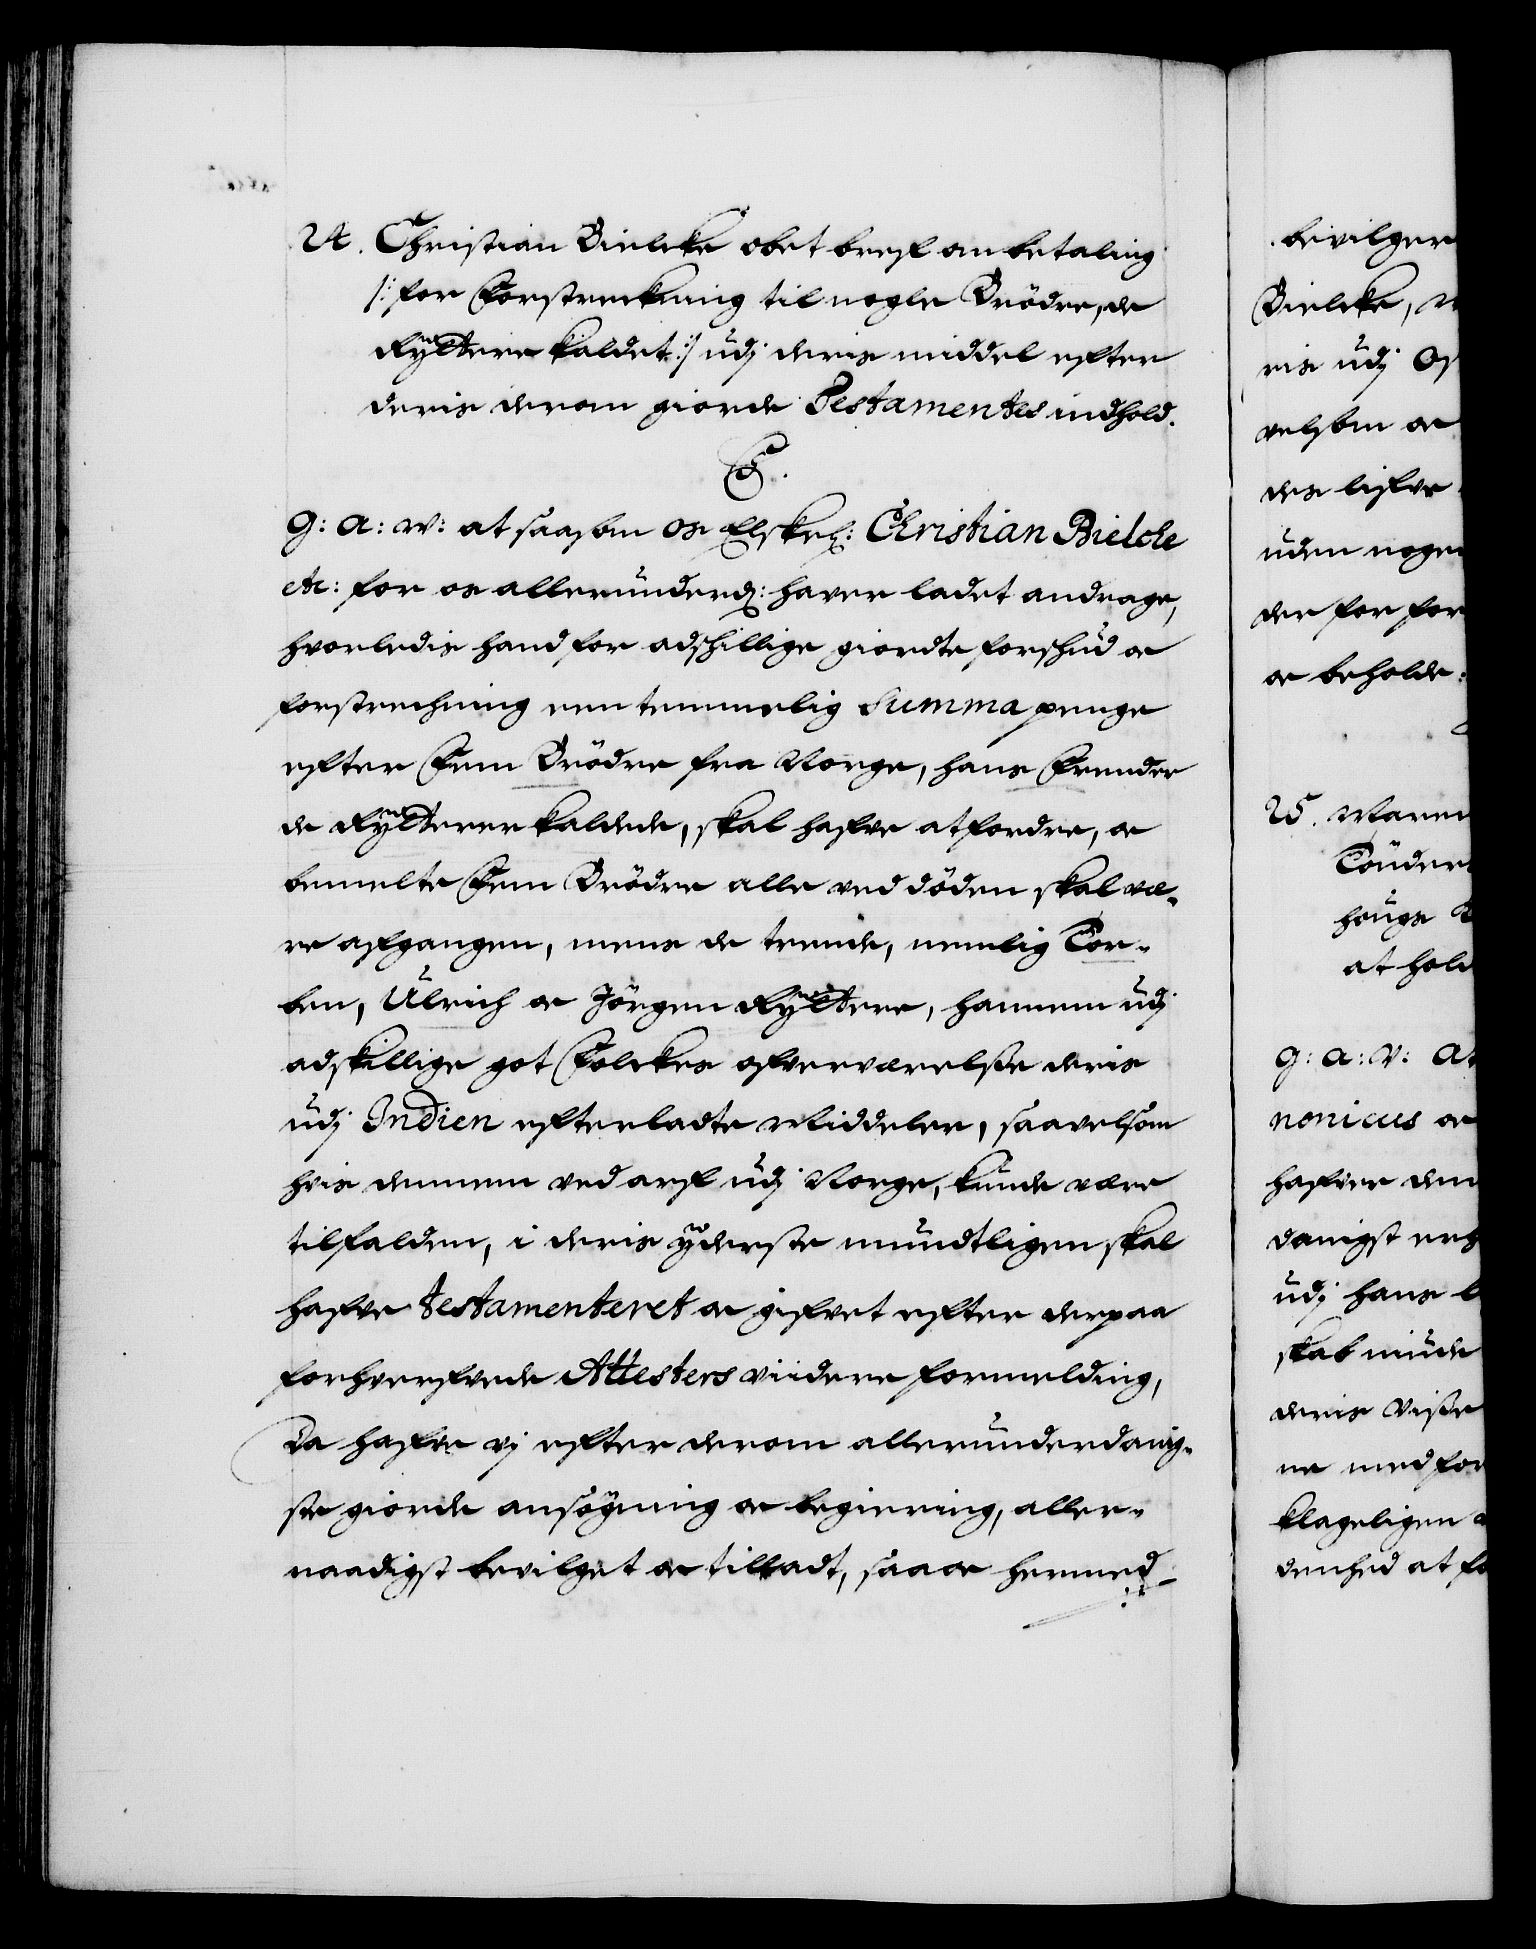 24. Christian Bielcke obet bref an betaling
/: for Forstreckning til nogle Brödre, de
Rÿttere kaldet :/ udj deris middel efter
deris derom giorde Testamentes indhold.
C5.
G: A: W: at saasom os Elskel: Christian Bielcke
etc: for os allerunderd: haver ladet andrage,
hvorledis hand for adschillige giordte forschud oc
forstrechning een temmelig Summa penge
efter Fem Brödre fra Norge, hans Frender
de Rÿtterer kaldede, skal hafve at fordre, oc
bemelte Fem Brödre alle ved döden skal væ-
re afgangen, mens de trende, nemlig Tor-
ben, Ulrich oc Jörgen Rÿttere, hannem udj
adskillige got Folckes ofverværelsse deris
udj Indien efterladte Middeler, saavelsom
hvis dennem ved arf udj Norge, kunde være
tilfalden, i deris ÿderste mundtligen skal
hafve testamenteret oc gifvet efter derpaa
forhverfvede Attesters viidere formelding,
Da hafve vj efter derom allerunderdanig-
ste giorde ansögning oc begiering, aller-
naadigst bevilget oc tilladt, saa oc hermed
bevilger
Bielcke,
ris udj
velsom oc
des lifve
uden nogen
der for for
oc beholde:
25. Maren
Tönder
hougs
at hold
G: A: V: At
nonicus oc
hafver dem
danigst
udj hans
skab
deris Visse
ne med for
klageligen
denhed at fo